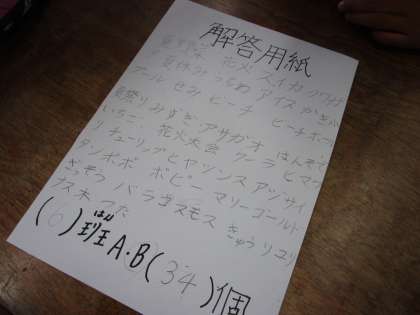 解答用紙
花火 スイカ クワガ
夏休み うちわ アイス かき
プール せみ ビーチ ビーチボー
夏祭り みずぎ アサガオ はんそで
いちご 花火大会 クーラ ヒマワ
チューリップ ヒヤシンス アジサイ
タンポポ ポピー マリーゴールド
ざっそう バラ コスモス きゅうり ユリ
ナス 木 つた
(6)班 はん A・B(34)個